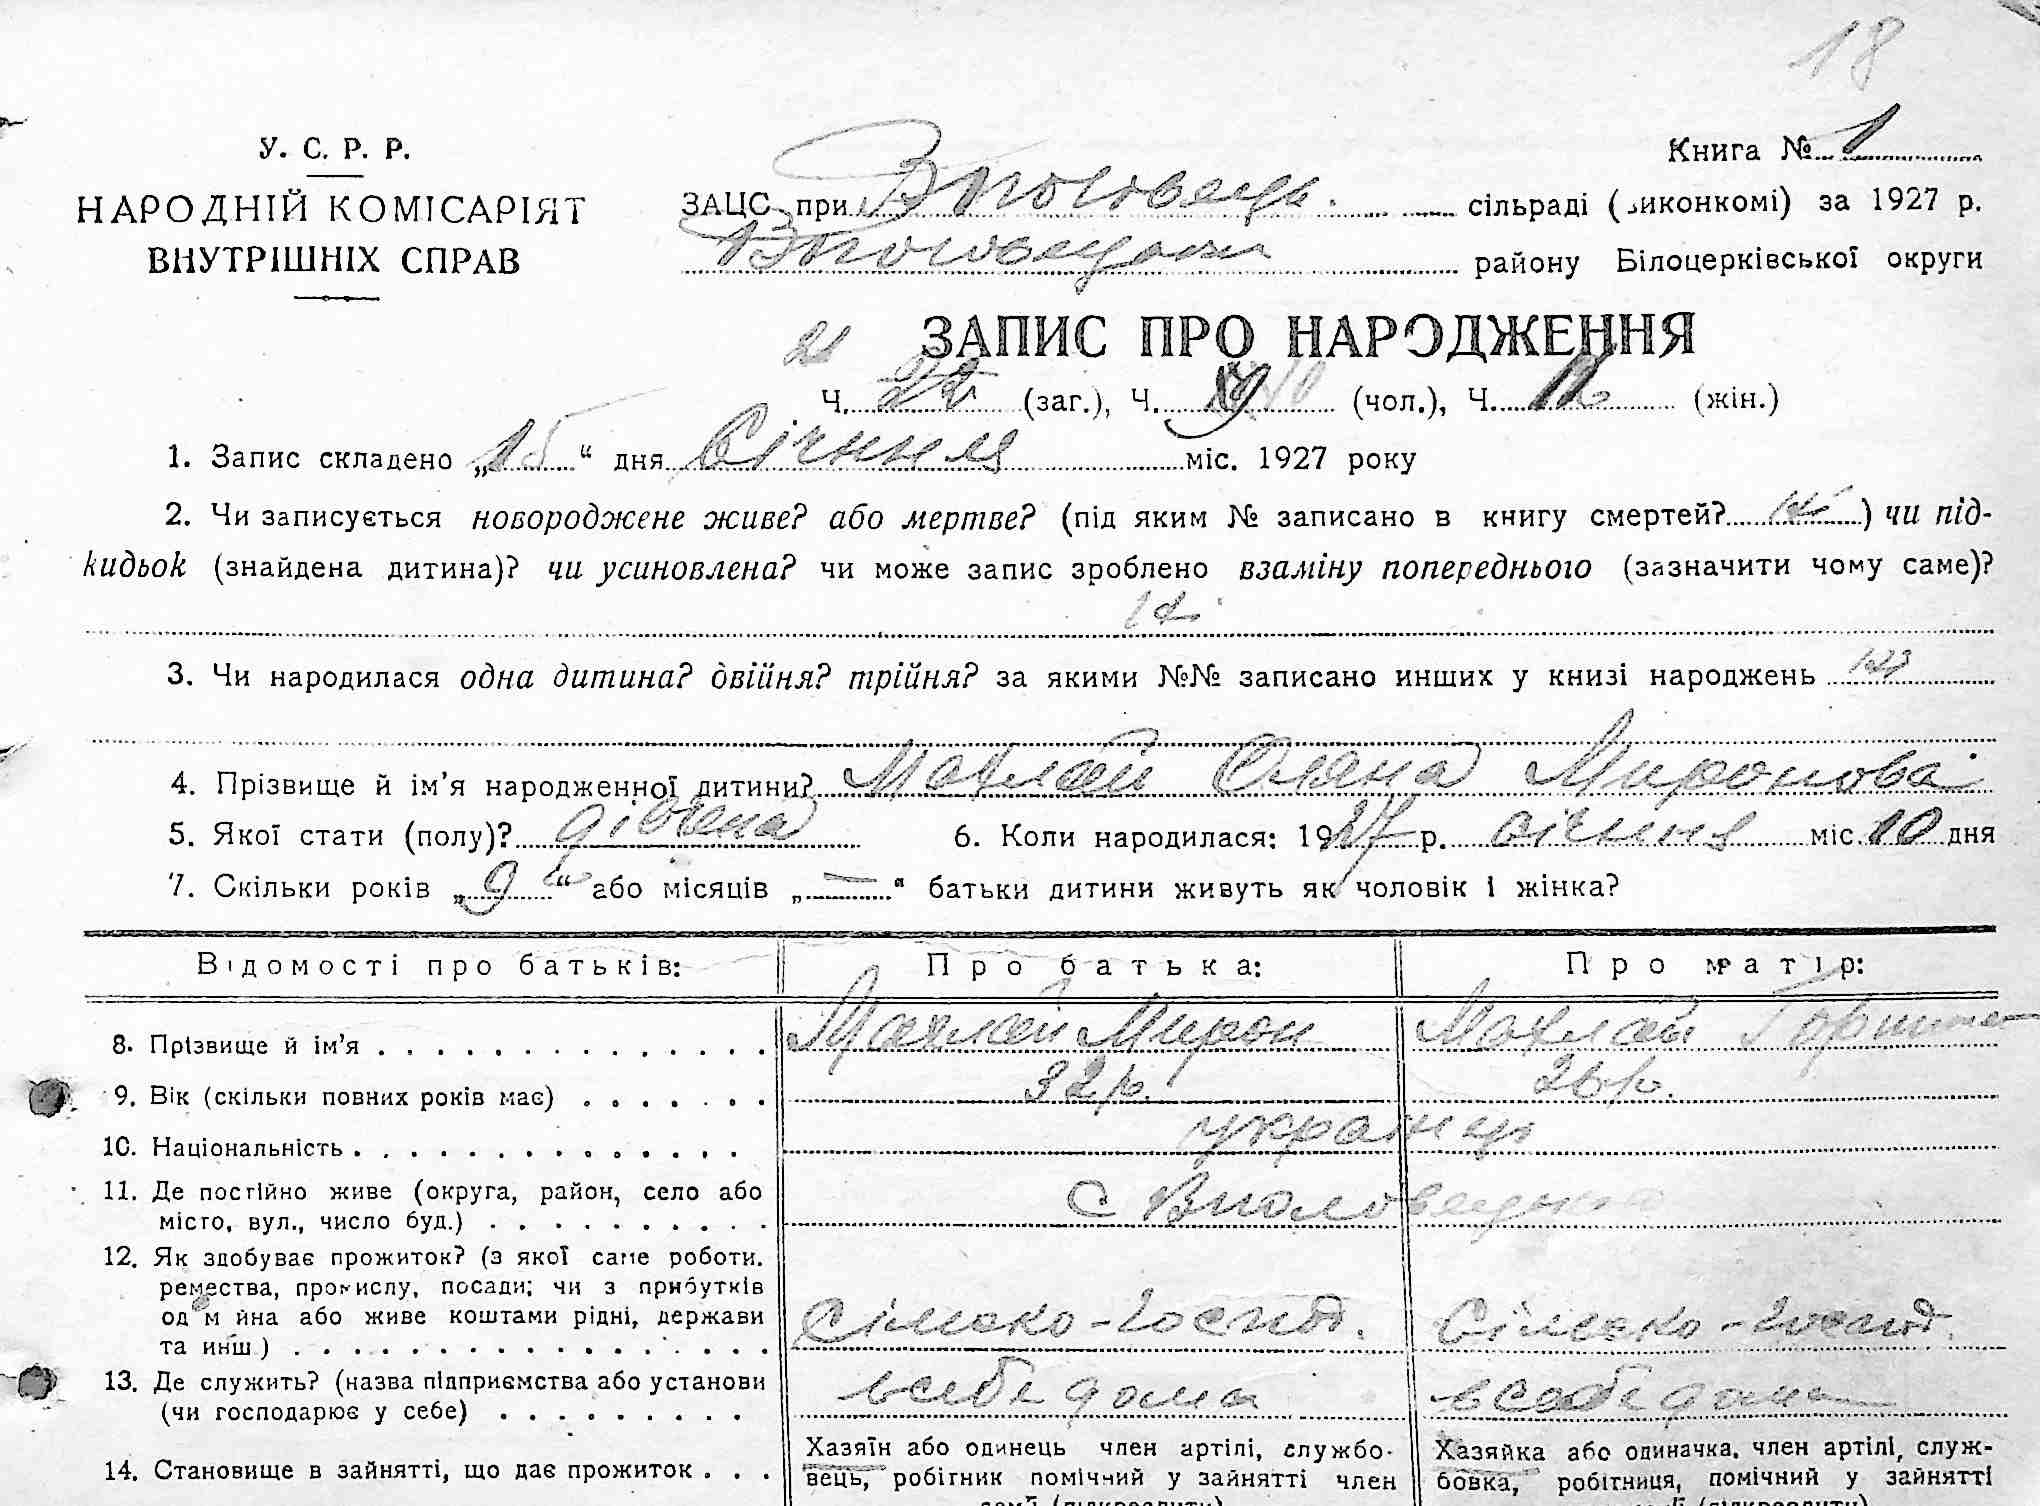 18
У. С. Р. Р.
НАРОДНІЙ КОМІСАРІЯТ
ВНУТРІШНІХ СПРАВ
Книга № 1
ЗАЦС при сільраді (виконкомі) за 1927 р.
району Білоцерківської округи
ЗАПИС ПРО НАРОДЖЕННЯ
21
Ч. 22 (заг.), Ч. (чол.), Ч. (жін.)
1. Запис складено „15“ дня Січння міс. 1927 року
2. Чи записується новороджене живе? або мертве? (під яким № записано в книгу смертей? ) чи під-
кидьок (знайдена дитина)? чи усиновлена? чи може запис зроблено взаміну попереднього (зазначити чому саме)?
3. Чи народилася одна дитина? двійня? трійня? за якими №№ записано инших у книзі народжень
4. Прізвище й ім'я народженної дитини? Махлай Оляна Миронова
5. Якої стати (полу)? дівчена 6. Коли народилася: 1927 р. січння міс. 10 дня
7. Скільки років „9“ або місяців „—“ батьки дитини живуть як чоловік і жінка?
Відомості про батьків: Про батька: Про матір:
8. Прізвище й ім'я . . . Махлай Мирон Махлай
9. Вік (скільки повних років має) . . . 32 р. 26 р.
10. Національність . . . українц
11. Де постійно живе (округа, район, село або
місто, вул., число буд.) . . . с
12. Як здобуває прожиток? (з якої саме роботи.
ремества, промислу, посади; чи з прибутків
од м йна або живе коштами рідні, держави
та инш.) . . . Сільско-господ. Сільско-господ.
13. Де служить? (назва підприємства або установи
(чи господарює у себе) . . . в себе дома в себе дома
14. Становище в зайнятті, що дає прожиток . . .
Хазяїн або одинець член артілі, службо-
вець, робітник помічний у зайнятті член
Хазяйка або одиначка, член артілі, служ-
бовка, робітниця, помічний у зайнятті